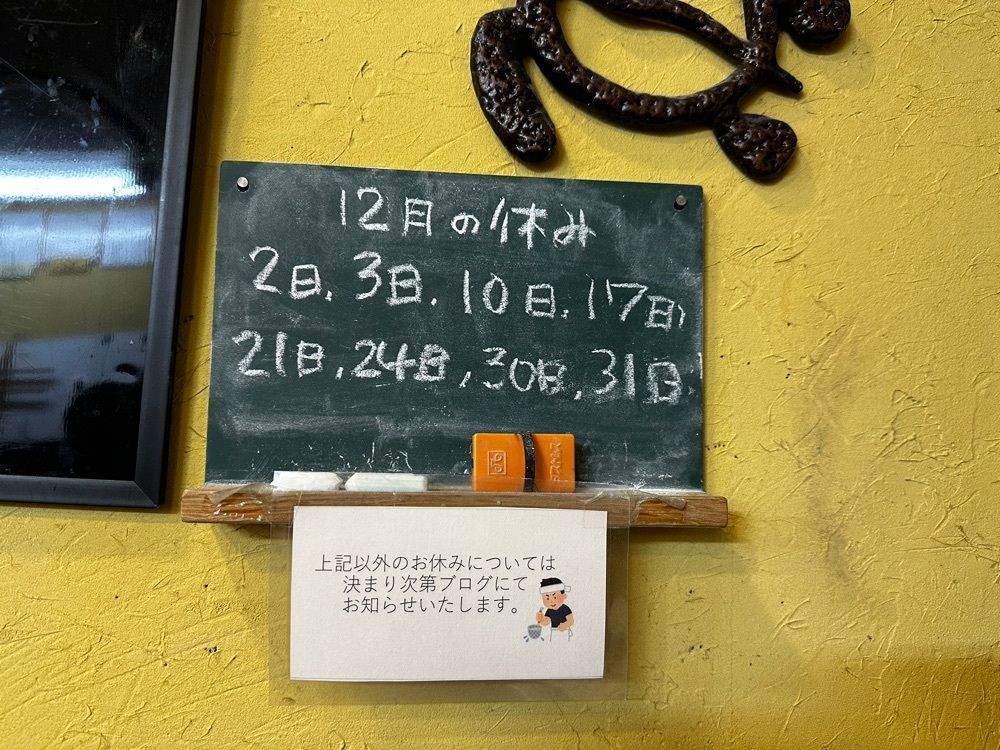 12月の休み
2日,3日,10日,17日,
21日,24日,30日,31日
上記以外のお休みについては
決まり次第ブログにて
お知らせいたします。